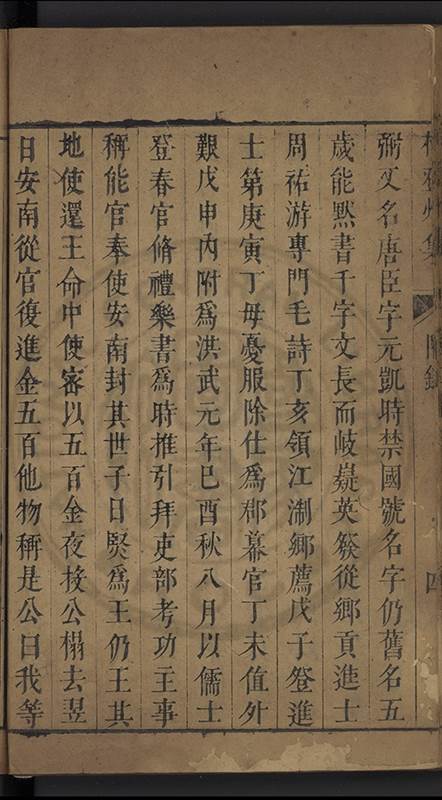 弼又名唐臣字元凱時禁國號名字仍舊名五
歲能黙書千字文長而岐嶷英發從鄉貢進士
周祐游專門毛詩丁亥領江浙鄉薦戊子登進
士第庚寅丁母憂服除仕爲郡幕官丁未值外
艱戊申内附爲洪武元年巳酉秋八月以儒士
登春官脩禮樂書爲時推引拜吏部考功主事
稱能官奉使安南封其世子日熞爲王仍王其
地使還王命中使密以五百金夜投公榻去翌
日安南從官復進金五百他物稱是公曰我等